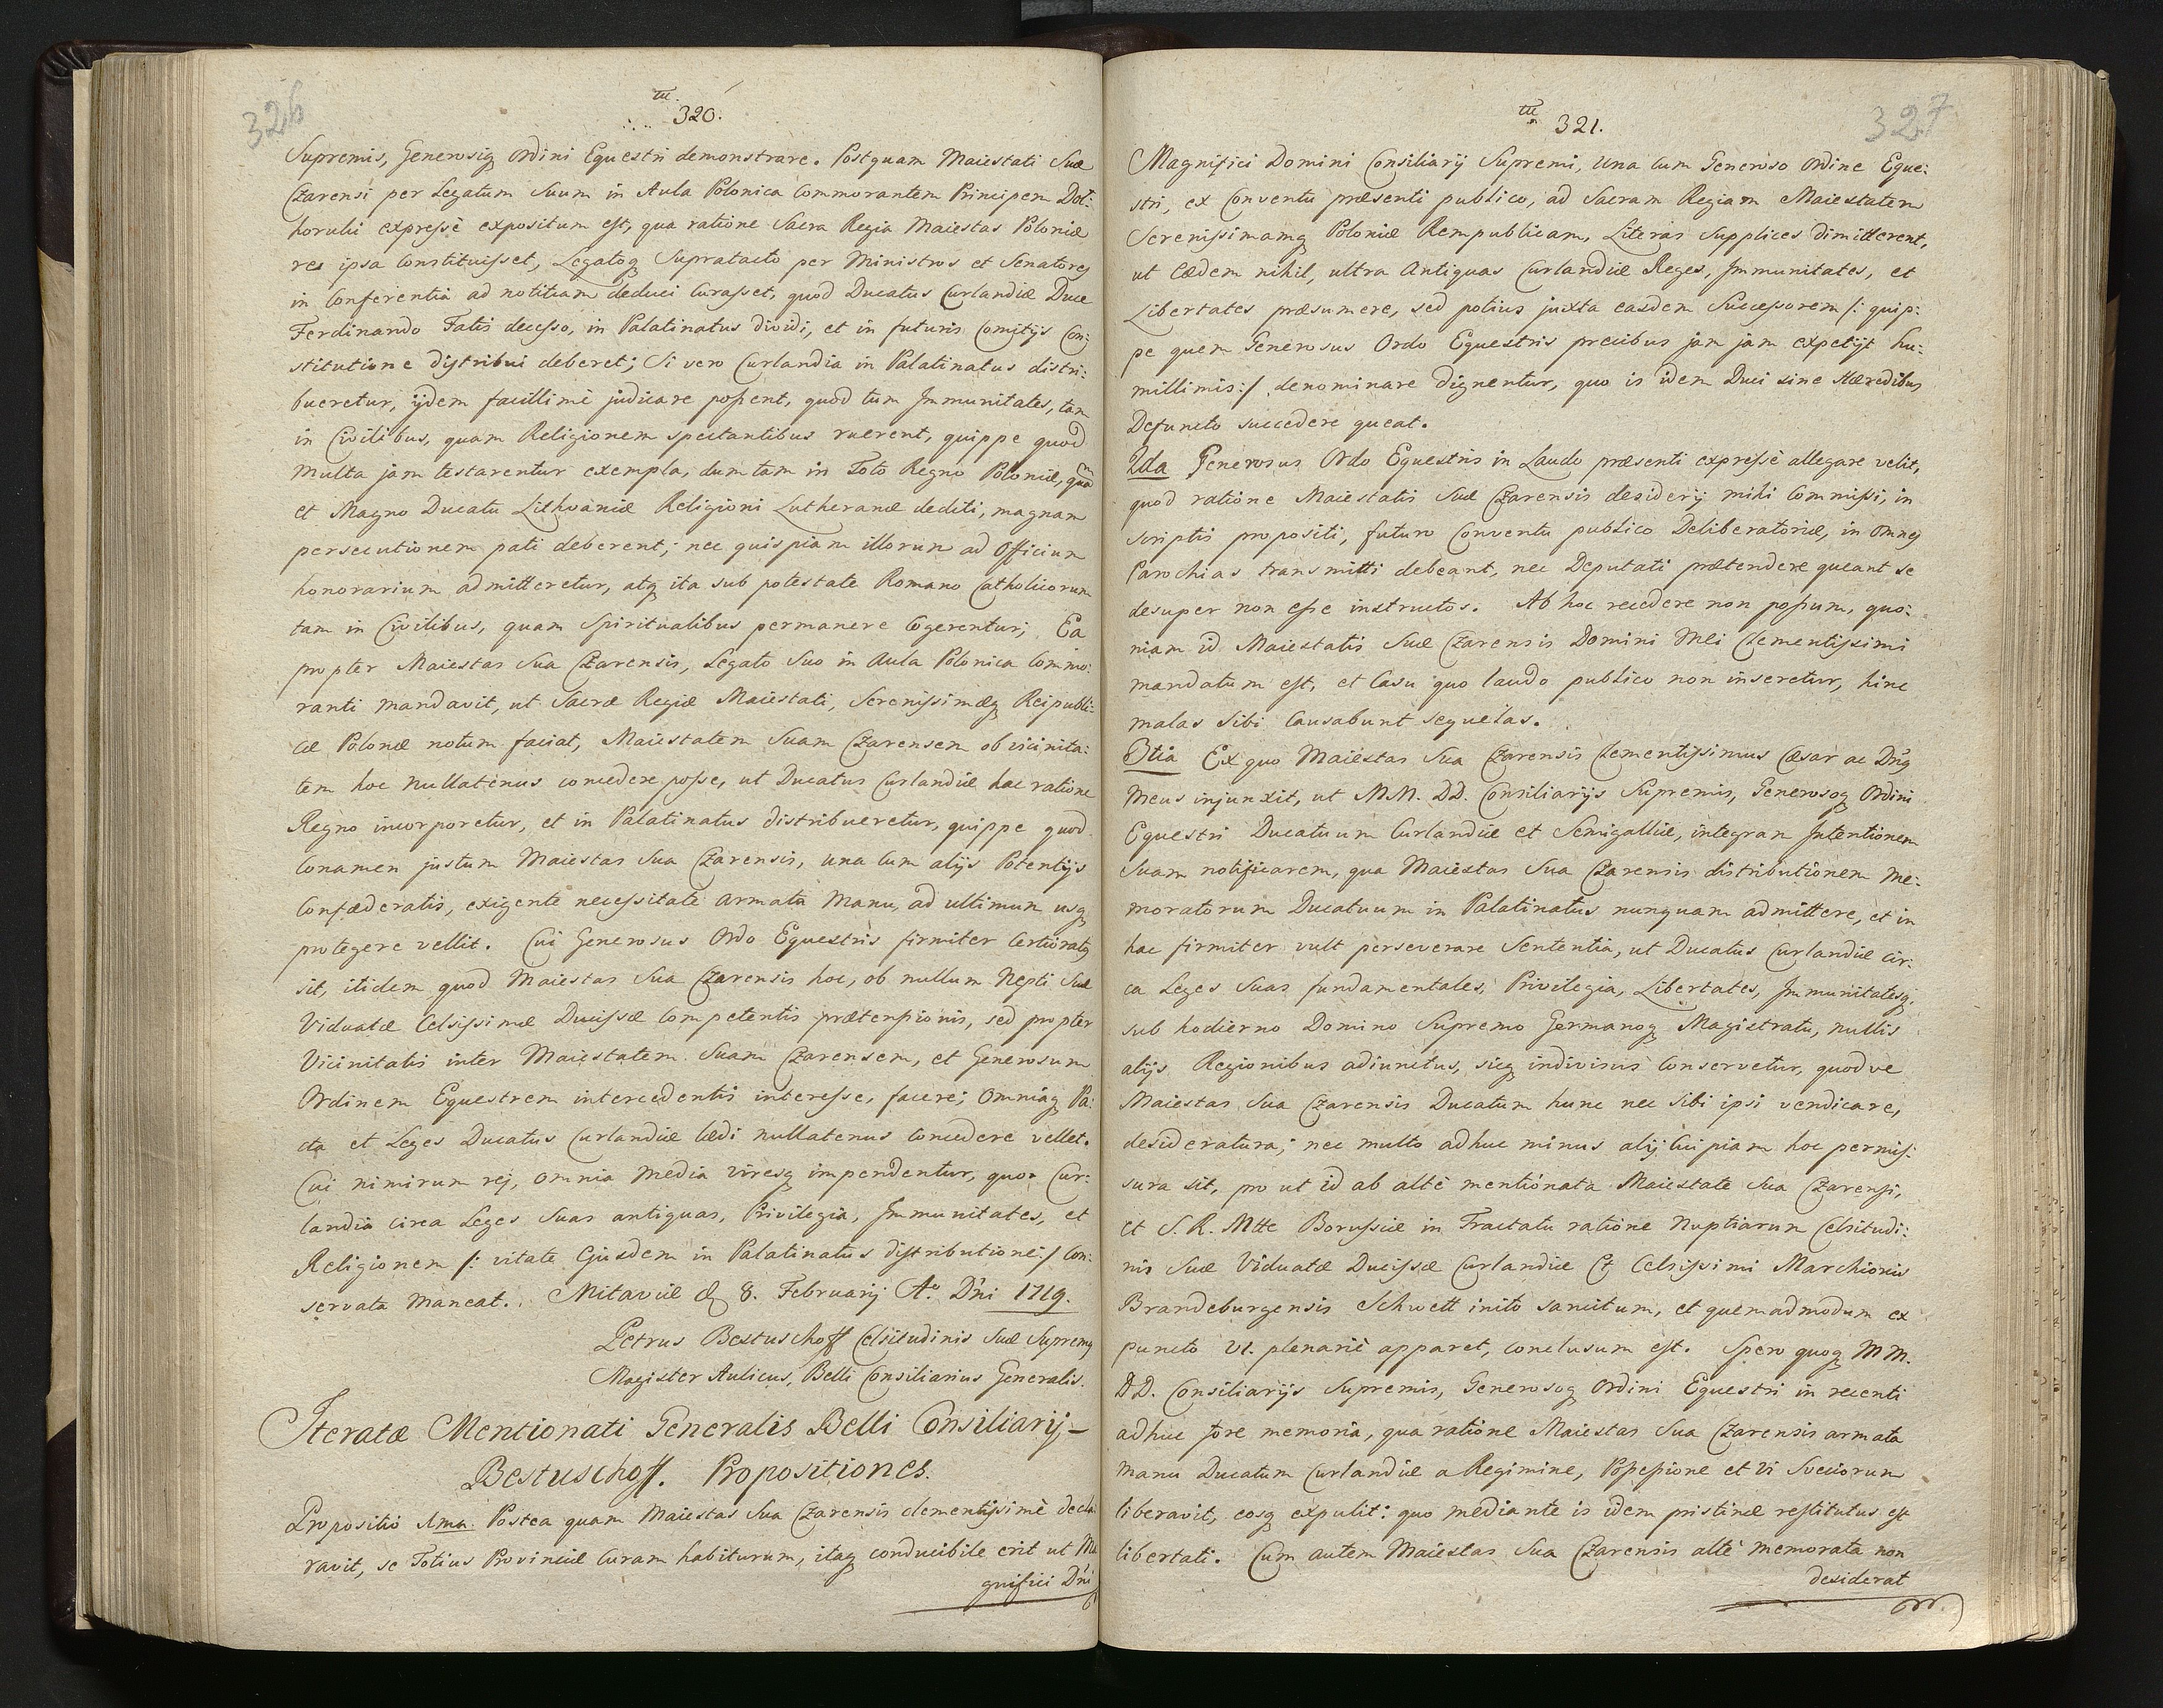 326
320.
Supremis, Generosiq Ordini Equestri demonstrare. Postquam Maiestati Suæ
Czarensi per Legatum Suum in Aula Polonica Commorantem Principem Dol:
horuki expressè expositum est, qua ratione Sacra Regia Maiestas Poloniæ
res ipsa Constituisset, Legatoq Supratacto per Ministros et Senatores
in Conferentia ad notitiam deduci Curasset, quod Ducatus Curlandiæ Duce
Ferdinando Fatis decesso, in Palatinatus dividi, et in futuris Comitijs Con:
stitutione distribui deberet; Si vero Curlandia in Palatinatus distri:
bueretur, ijdem facillimè judicare possent, quod tum Immunitates, tam
in Civilibus, quam Religionem spectantibus ruerent, quippe quod
multa jam testarentur exempla, dum tam in Toto Regno Poloniæ, quam
et Magno Ducatu Lithvaniæ Religioni Lutheranæ dediti, magnam
persecutionem pati deberent; nec quispiam illorum ad Officium
honorarium admitteretur, atq ita sub potestate Romano Catholicorum
tam in Civilibus, quam Spiritualibus permanere Cogerentur; Ea
propter Maiestas Sua Czarensis, Legato Suo in Aula Polonica Commo:
ranti mandavit, ut Sacræ Regiæ Maiestati, Serenissimæq Reipubli:
cæ Polonæ notum faciat, Maiestatem Suam Czarensem ob vicinita:
tem hoc nullatenus concedere posse, ut Ducatus Curlandiæ hac ratione
Regno incorporetur, et in Palatinatus distribueretur, quippe quod
Conamen justum Maiestas Sua Czarensis, una Cum alijs Potentijs
Confæderatis, exigente necessitate armata Manu, ad ultimum usq
protegere vellit. Cui Generosus Ordo Equestris firmiter Certioratq
sit, itidem quod Maiestas Sua Czarensis hoc, ob nullum Nepti Suæ
Viduatæ Celsissimæ Ducissæ Competentis prætensionis, sed propter
Vicinitatis inter Maiestatem Suam Czarensem, et Generosum
Ordinem Equestrem intercedentis interesse, facere; Omniaq Pa:
cta et Leges Ducatus Curlandiæ lædi nullatenus Concedere vellet.
Cui nimirum rej, omnia media viresq impendentur, quo Cur:
landia circa Leges Suas antiquas, Privilegia, Immunitates, et
Religionem /: vitate Ejusdem in Palatinatus distributione :/ Con:
servata maneat. Mitaviæ d 8. Februarij Ao Dni 1719.
Petrus Bestuschoff Celsitudinis Suæ Supremq
Magister Aulicus, Belli Consiliarius Generalis.
Iteratæ Mentionati Generalis Belli Consiliarij
Bestuschoff. Propositiones.
Propositio 1ma. Postea quam Maiestas Sua Czarensis clementissimè decla
ravit, se Totius Provinciæ Curam habiturum, itaq conducibile erit ut Ma
gnifici Dni
327
321.
Magnifici Domini Consiliarij Supremi, Una Cum Generoso Ordine Eque:
stri, ex Conventu præsenti publico, ad Sacram Regiam Maiestatem
Serenissimamq Poloniæ Rempublicam, Literas Supplices dimitterent,
ut Eædem nihil, ultra Antiquas Curlandiæ Reges, Immunitates, et
Libertates præsumere, sed potius juxta easdem Successorem /: quip:
pe quem Generosus Ordo Equestris precibus jam jam expetijt hu:
millimis :/ denominare dignentur, quo is idem Duci sine Hæredibus
Defuncto succedere queat.
2da Generosus Ordo Equestris in Laudo præsenti expressè allegare velit,
quod ratione Maiestatis Suæ Czarensis desiderij mihi Commissi, in
scriptis propositi, futuro Conventu publico Deliberatoriæ, in omnes
Parochias transmitti debeant, nec Deputati prætendere queant se
desuper non esse instructos. Ab hoc recedere non possum, quo:
niam id Maiestatis Suæ Czarensis Domini Mei Clementissimi
mandatum est, et Casu quo laudo publico non inseretur, hinc
malas sibi Causabunt sequelas.
3tia Ex quo Maiestas Sua Czarensis Clementissimus Cæsar ac Dnq
Meus injunxit, ut MM. DD. Consiliarijs Supremis, Generosoq Ordini
Equestri Ducatuum Curlandiæ et Semigalliæ, integram Intentionem
Suam notificarem, qua Maiestas Sua Czarensis distributionem Me:
moratorum Ducatuum in Palatinatus nunquam admittere, et in
hac firmiter vult perseverare Sententia, ut Ducatus Curlandiæ cir:
ca Leges Suas fundamentales, Privilegia, Libertates, Immunitatesq
sub hodierno Domino Supremo Germanoq Magistratu, nullis
alijs Regionibus adiunctus, sicq indivisus Conservetur, quodve
Maiestas Sua Czarensis Ducatum hunc nec sibi ipsi vendicare,
desideratura; nec multo adhuc minus alij Cuipiam hoc permis:
sura sit, pro ut id ab altè mentionata Maiestate Sua Czarensi,
et S. R. Mtte Borussiæ in Tractatu ratione Nuptiarum Celsitudi:
nis Suæ Viduatæ Ducissæ Curlandiæ et Celsissimi Marchionis
Brandeburgensis Schwett inito sancitum, et quemadmodum ex
puncto VI. plenariè apparet, conclusum est. Spero quoq MM.
DD. Consiliarijs Supremis, Generosoq Ordini Equestri in recenti
adhuc fore memoria, qua ratione Maiestas Sua Czarensis armata
manu Ducatum Curlandiæ a Regimine, Possessione et Vi Sveciorum
liberavit, eosq expulit: quo mediante is idem pristinæ restitutus est
libertati. Cum autem Maiestas Sua Czarensis altè memorata non
desiderat